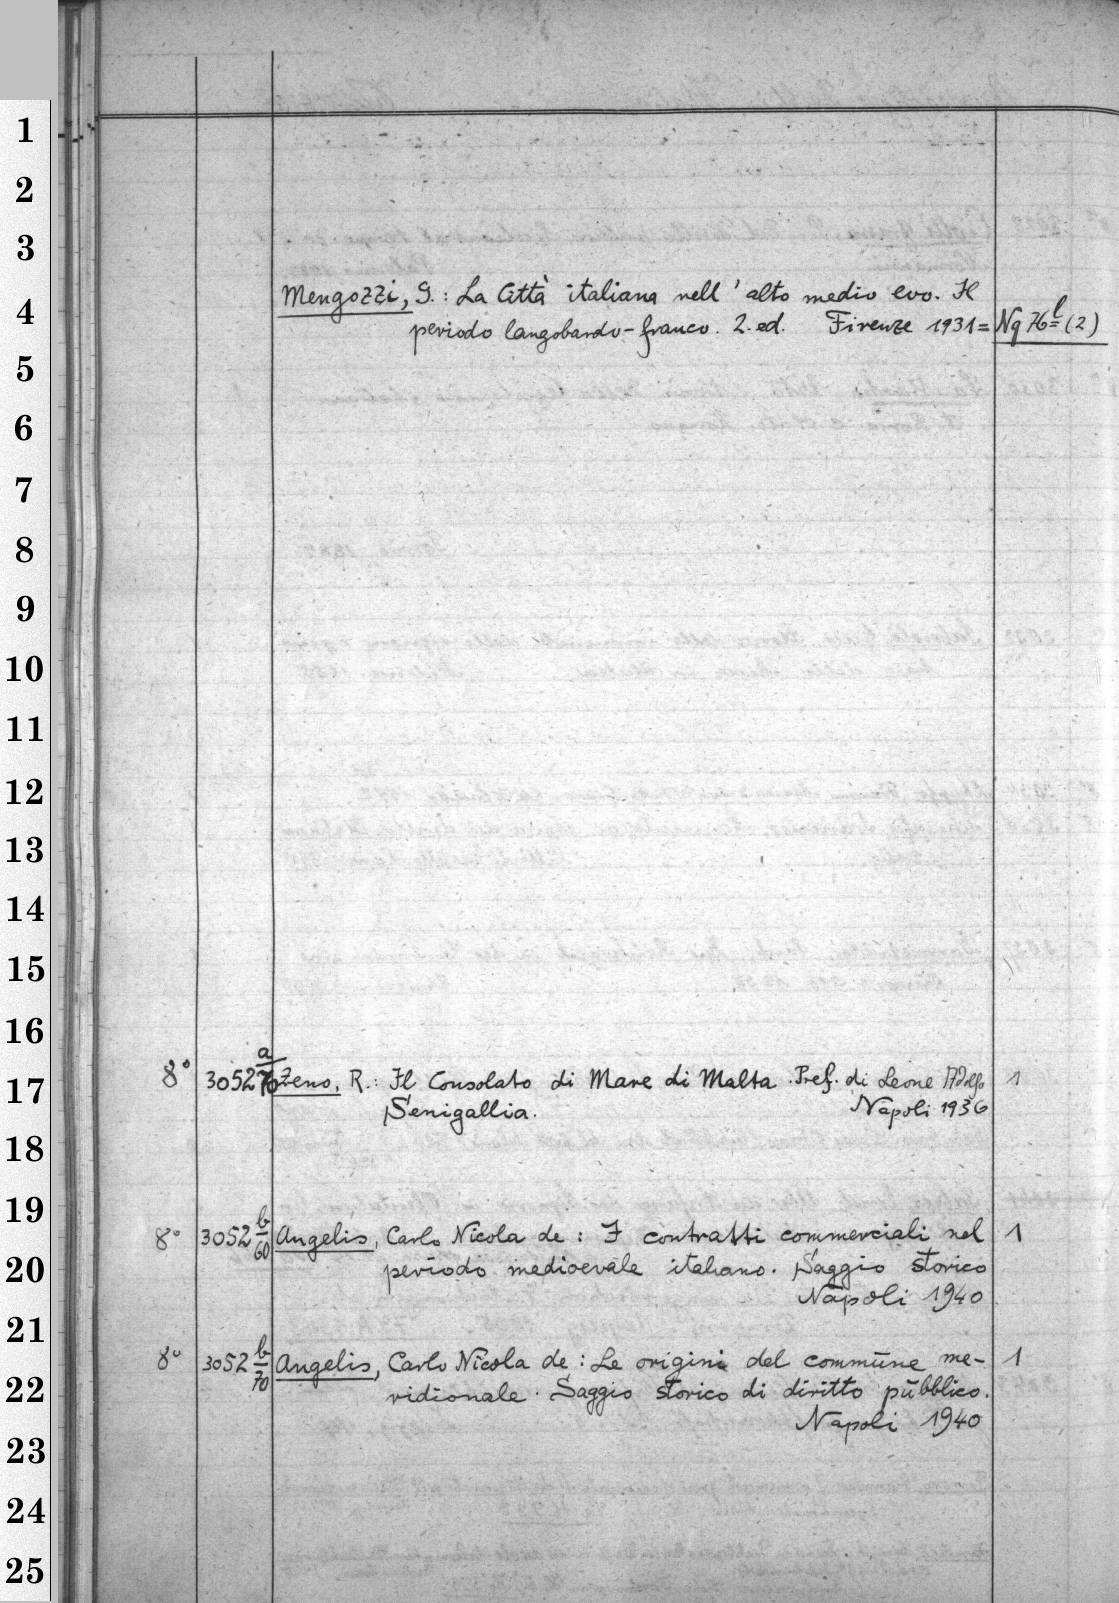 1
2
3
4
5
6
7
8
9
10
11
12
13
14
15
16
17
18
19
20
21
22
23
24
25
Mengozzi, G.: La Città italiana nell' alto medio evo. Il
periodo langobardo-franco. 2. ed. Firenze 1931 = Nq 76 l (2)
8° 3052 a/70 Zeno, R.: Il Consolato di Mare di Malta. Pref. di Leone Adolfo 1
Senigallia. Napoli 1936
8° 3052 b/60 Angelis, Carlo Nicola de: I contratti commerciali nel 1
periodo medioevale italiano. Saggio storico
Napoli 1940
8° 3052 b/70 Angelis, Carlo Nicola de: Le origini del commune me- 1
ridionale. Saggio storico di diritto pubblico.
Napoli 1940